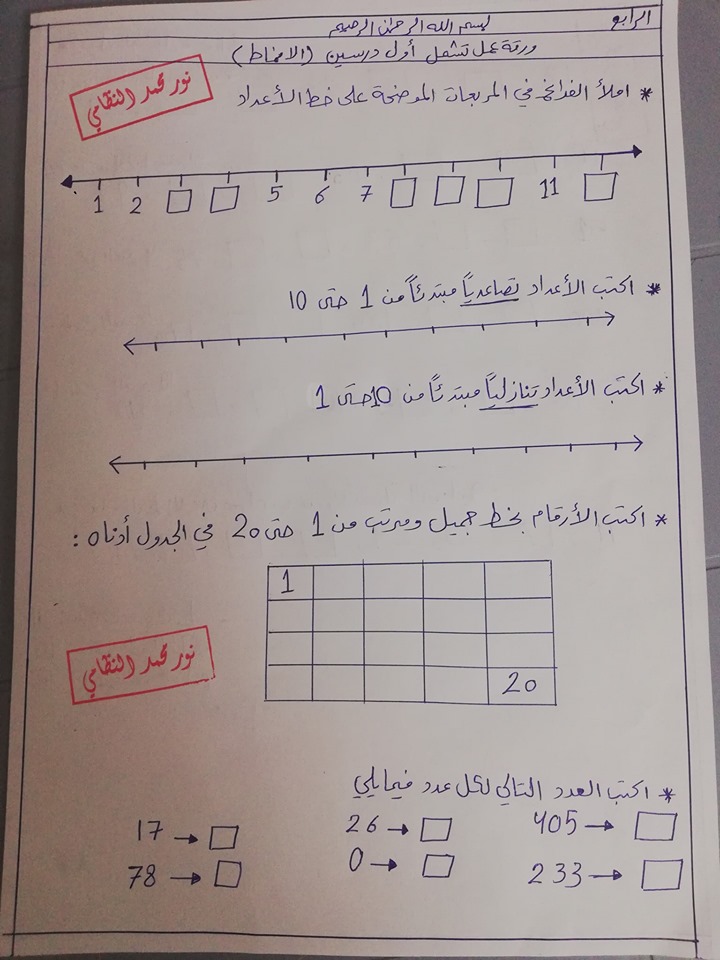 الرابع
بسم الله الرحمن الرحيم
ورقة عمل تشمل أول درسين (الانماط)
نور محمد النظامي
* املأ الفراغ في المربعات الموضحة على خط الأعداد
1 2 5 6 7 11
* اكتب الأعداد تصاعدياً مبتدئاً من 1 حتى 10
* اكتب الأعداد تنازلياً مبتدئاً من 10 حتى 1
* اكتب الأرقام بخط جميل ومرتب من 1 حتى 20 في الجدول أدناه :
1
20
نور محمد النظامي
* اكتب العدد التالي لكل عدد فيمايلي
17 → 26 → 405 →
78 → 0 → 233 →